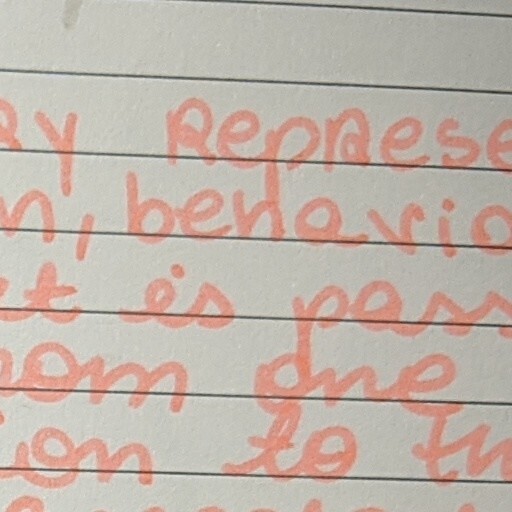 ay represe
n, behavio
t is pass
om one
ion to th